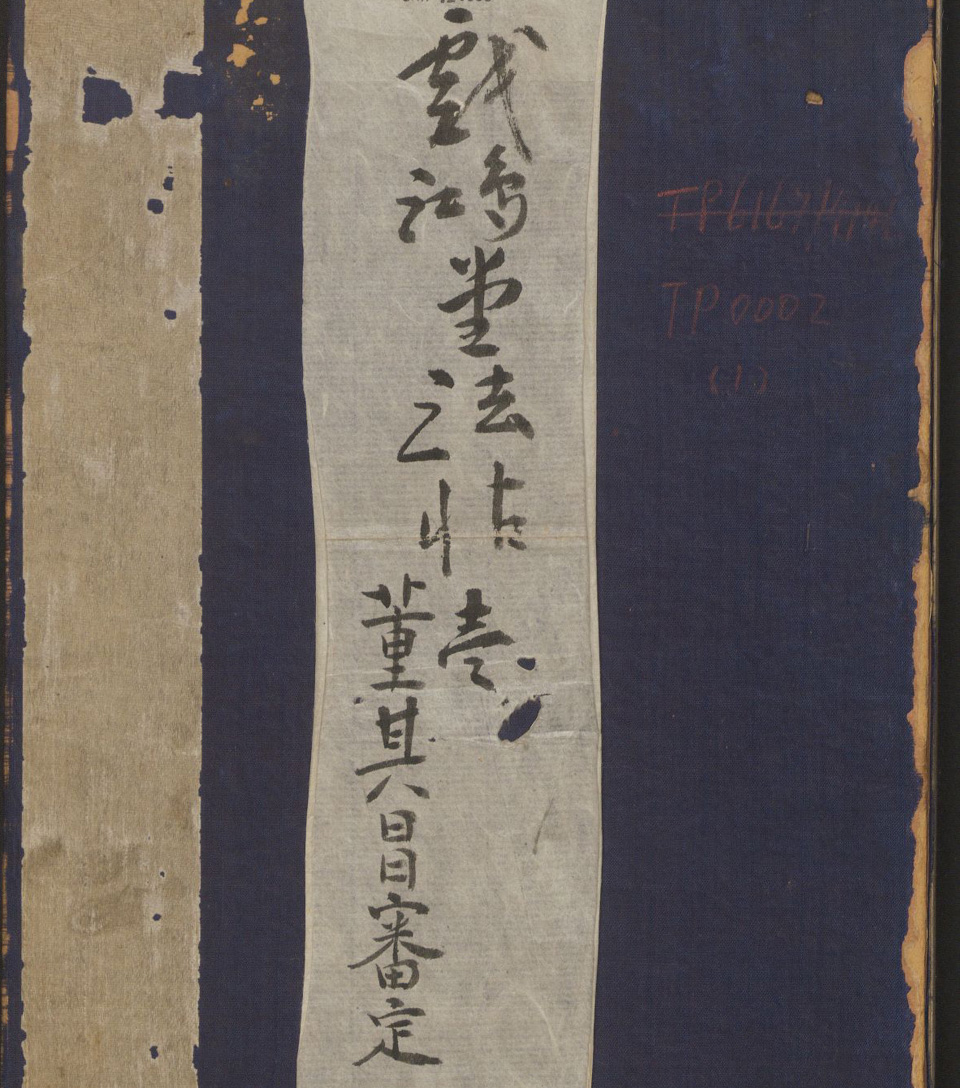 戲鴻堂法帖
壹
董其昌審定
TP6167
TP0002
(1)